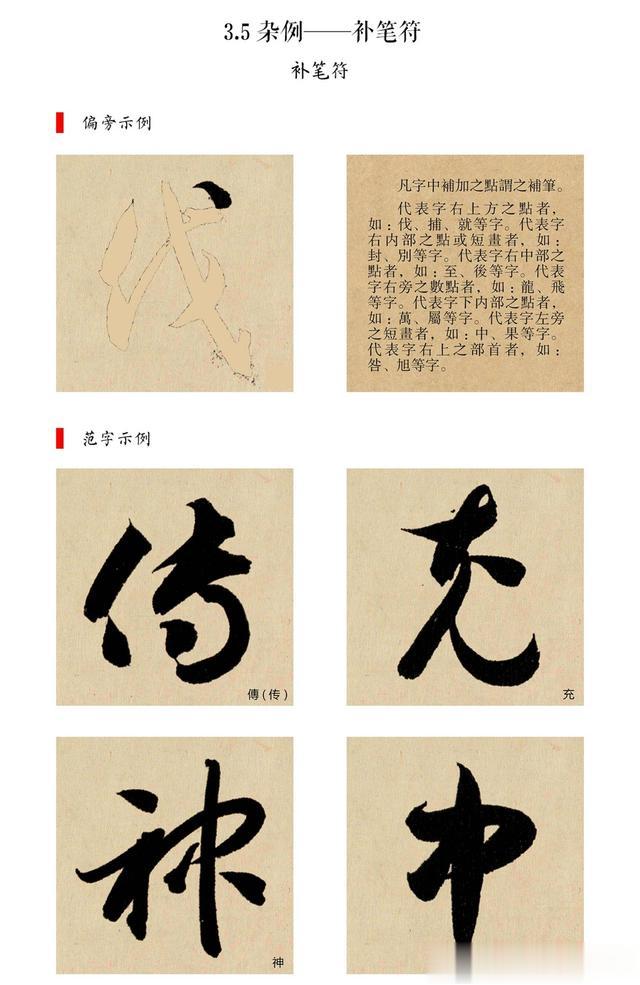 3.5 杂例——补笔符
补笔符
偏旁示例
伐
凡字中補加之點謂之補筆。
代表字右上方之點者，
如：伐、捕、就等字。代表字
右内部之點或短畫者，如：
封、別等字。代表字右中部之
點者，如：至、後等字。代表
字右旁之數點者，如：龍、飛
等字。代表字下内部之點者，
如：萬、屬等字。代表字左旁
之短畫者，如：中、果等字。
代表字右上之部首者，如：
咎、旭等字。
范字示例
傳
充
傳（传）
充
神
中
神